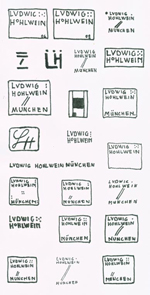 LVDWIG
HOHLWEIN
LVDWIG
HOHLWEIN
LVDWIG
HOHLWEIN
MÜNCHEN
LH
LVDWIG
HOHLWEIN
MÜNCHEN
LVDWIG
HOHLWEIN
LVDWIG
HOHLWEIN
MÜNCHEN
LVDWIG
HOHLWEIN
MÜNCHEN
LH
LVDWIG
HOHLWEIN
LVDWIG
HOHLWEIN
LVDWIG HOHLWEIN MÜNCHEN
LVDWIG
HOHLWEIN
MÜNCHEN
LVDWIG
HOHLWEIN
MÜNCHEN
LVDWIG
HOHLWEIN
MÜNCHEN
LVDWIG
HOHLWEIN
LVDWIG
HOHLWEIN
MÜNCHEN
LVDWIG
HOHLWEIN
LVDWIG
HOHLWEIN
MÜNCHEN
LVDWIG
HOHLWEIN
MÜNCHEN
LVDWIG
HOHLWEIN
MÜNCHEN